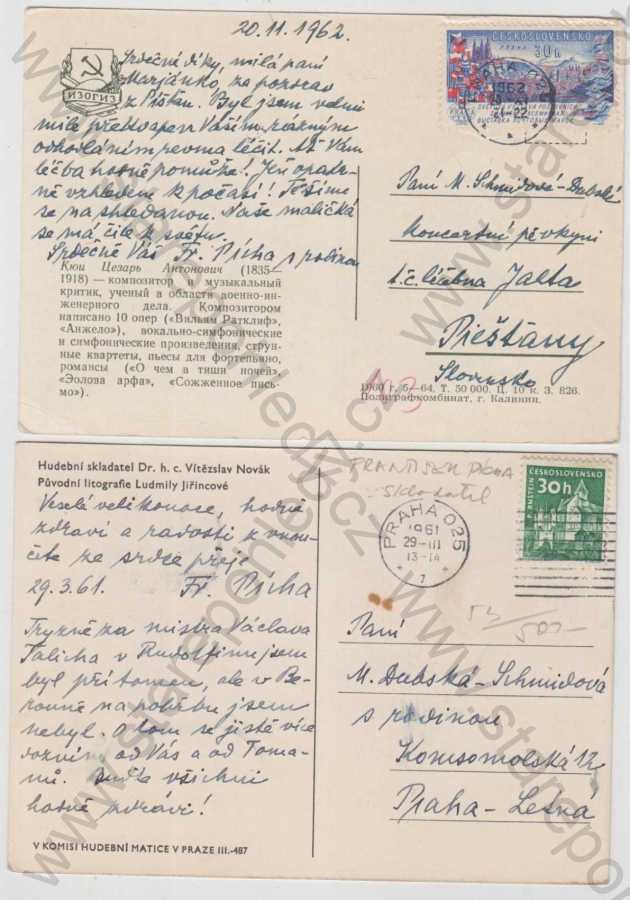 20.11.1962.
Srdečné díky, milá paní
Marjánko, za pozdrav
z Píšťan. Byl jsem velmi
mile překvapen Vaším
léčit. Ať Vám
léčba hodně pomůže! Jen opatr-
ně vzhledem k počasí! Těšíme
se na shledanou. Naše maličká
se má čile k světu.
Srdečně Váš Fr. Pícha s rodinou
ИЗОГИЗ
Кюи Цезарь Антонович (1835—
1918) — композитор и музыкальный
критик, ученый в области военно-ин-
женерного дела. Композитором
написано 10 опер («Вильям Ратклиф»,
«Анжело»), вокально-симфонические
и симфонические произведения, струн-
ные квартеты, пьесы для фортепьяно,
романсы («О чем в тиши ночей»,
«Эолова арфа», «Сожженное пись-
мо»).
ČESKOSLOVENSKO
PRAHA 30h
PRAHA 025
1962
Paní M. Schmidová-Dubská
koncertní pěvkyni
t.č. léčebna Jalta
Piešťany
Slovensko
103
1960 г. 5—64. Т. 50 000. Ц. 10 к. З. 826.
Полиграфкомбинат, г. Калинин.
Hudební skladatel Dr. h. c. Vítězslav Novák
Původní litografie Ludmily Jiřincové
Veselé velikonoce, hodně
zdraví a radosti z vnou-
čete ze srdce přeje
29.3.61. Fr. Pícha
Tryzně za mistra Václava
Talicha v Rudolfinu jsem
byl přítomen, ale v Be-
rouně na pohřbu jsem
nebyl. O tom se jistě více
dozvím od Vás a od Toma-
nů. Buďte všichni
hodně zdrávi!
V KOMISI HUDEBNÍ MATICE V PRAZE III.-487
FRANTIŠEK PÍCHA
skladatel
PRAHA 025
1961
29-III
13-14
1
ČESKOSLOVENSKO
30h
PERNŠTEJN
52/502-
Paní
M. Dubská-Schmidová
s rodinou
Komsomolská 12
Praha-Letná
www.starepohledy.cz